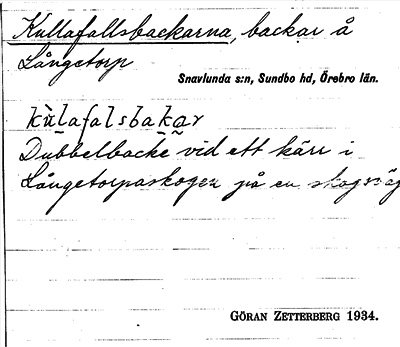 Kullafallsbackarna, backar å
Långetorp
Snavlunda s:n, Sundbo hd, Örebro län.
kùlafalsbakar
Dubbelbacke vid ett kärr i
Långetorpaskogen på en skogsväg
GÖRAN ZETTERBERG 1934.